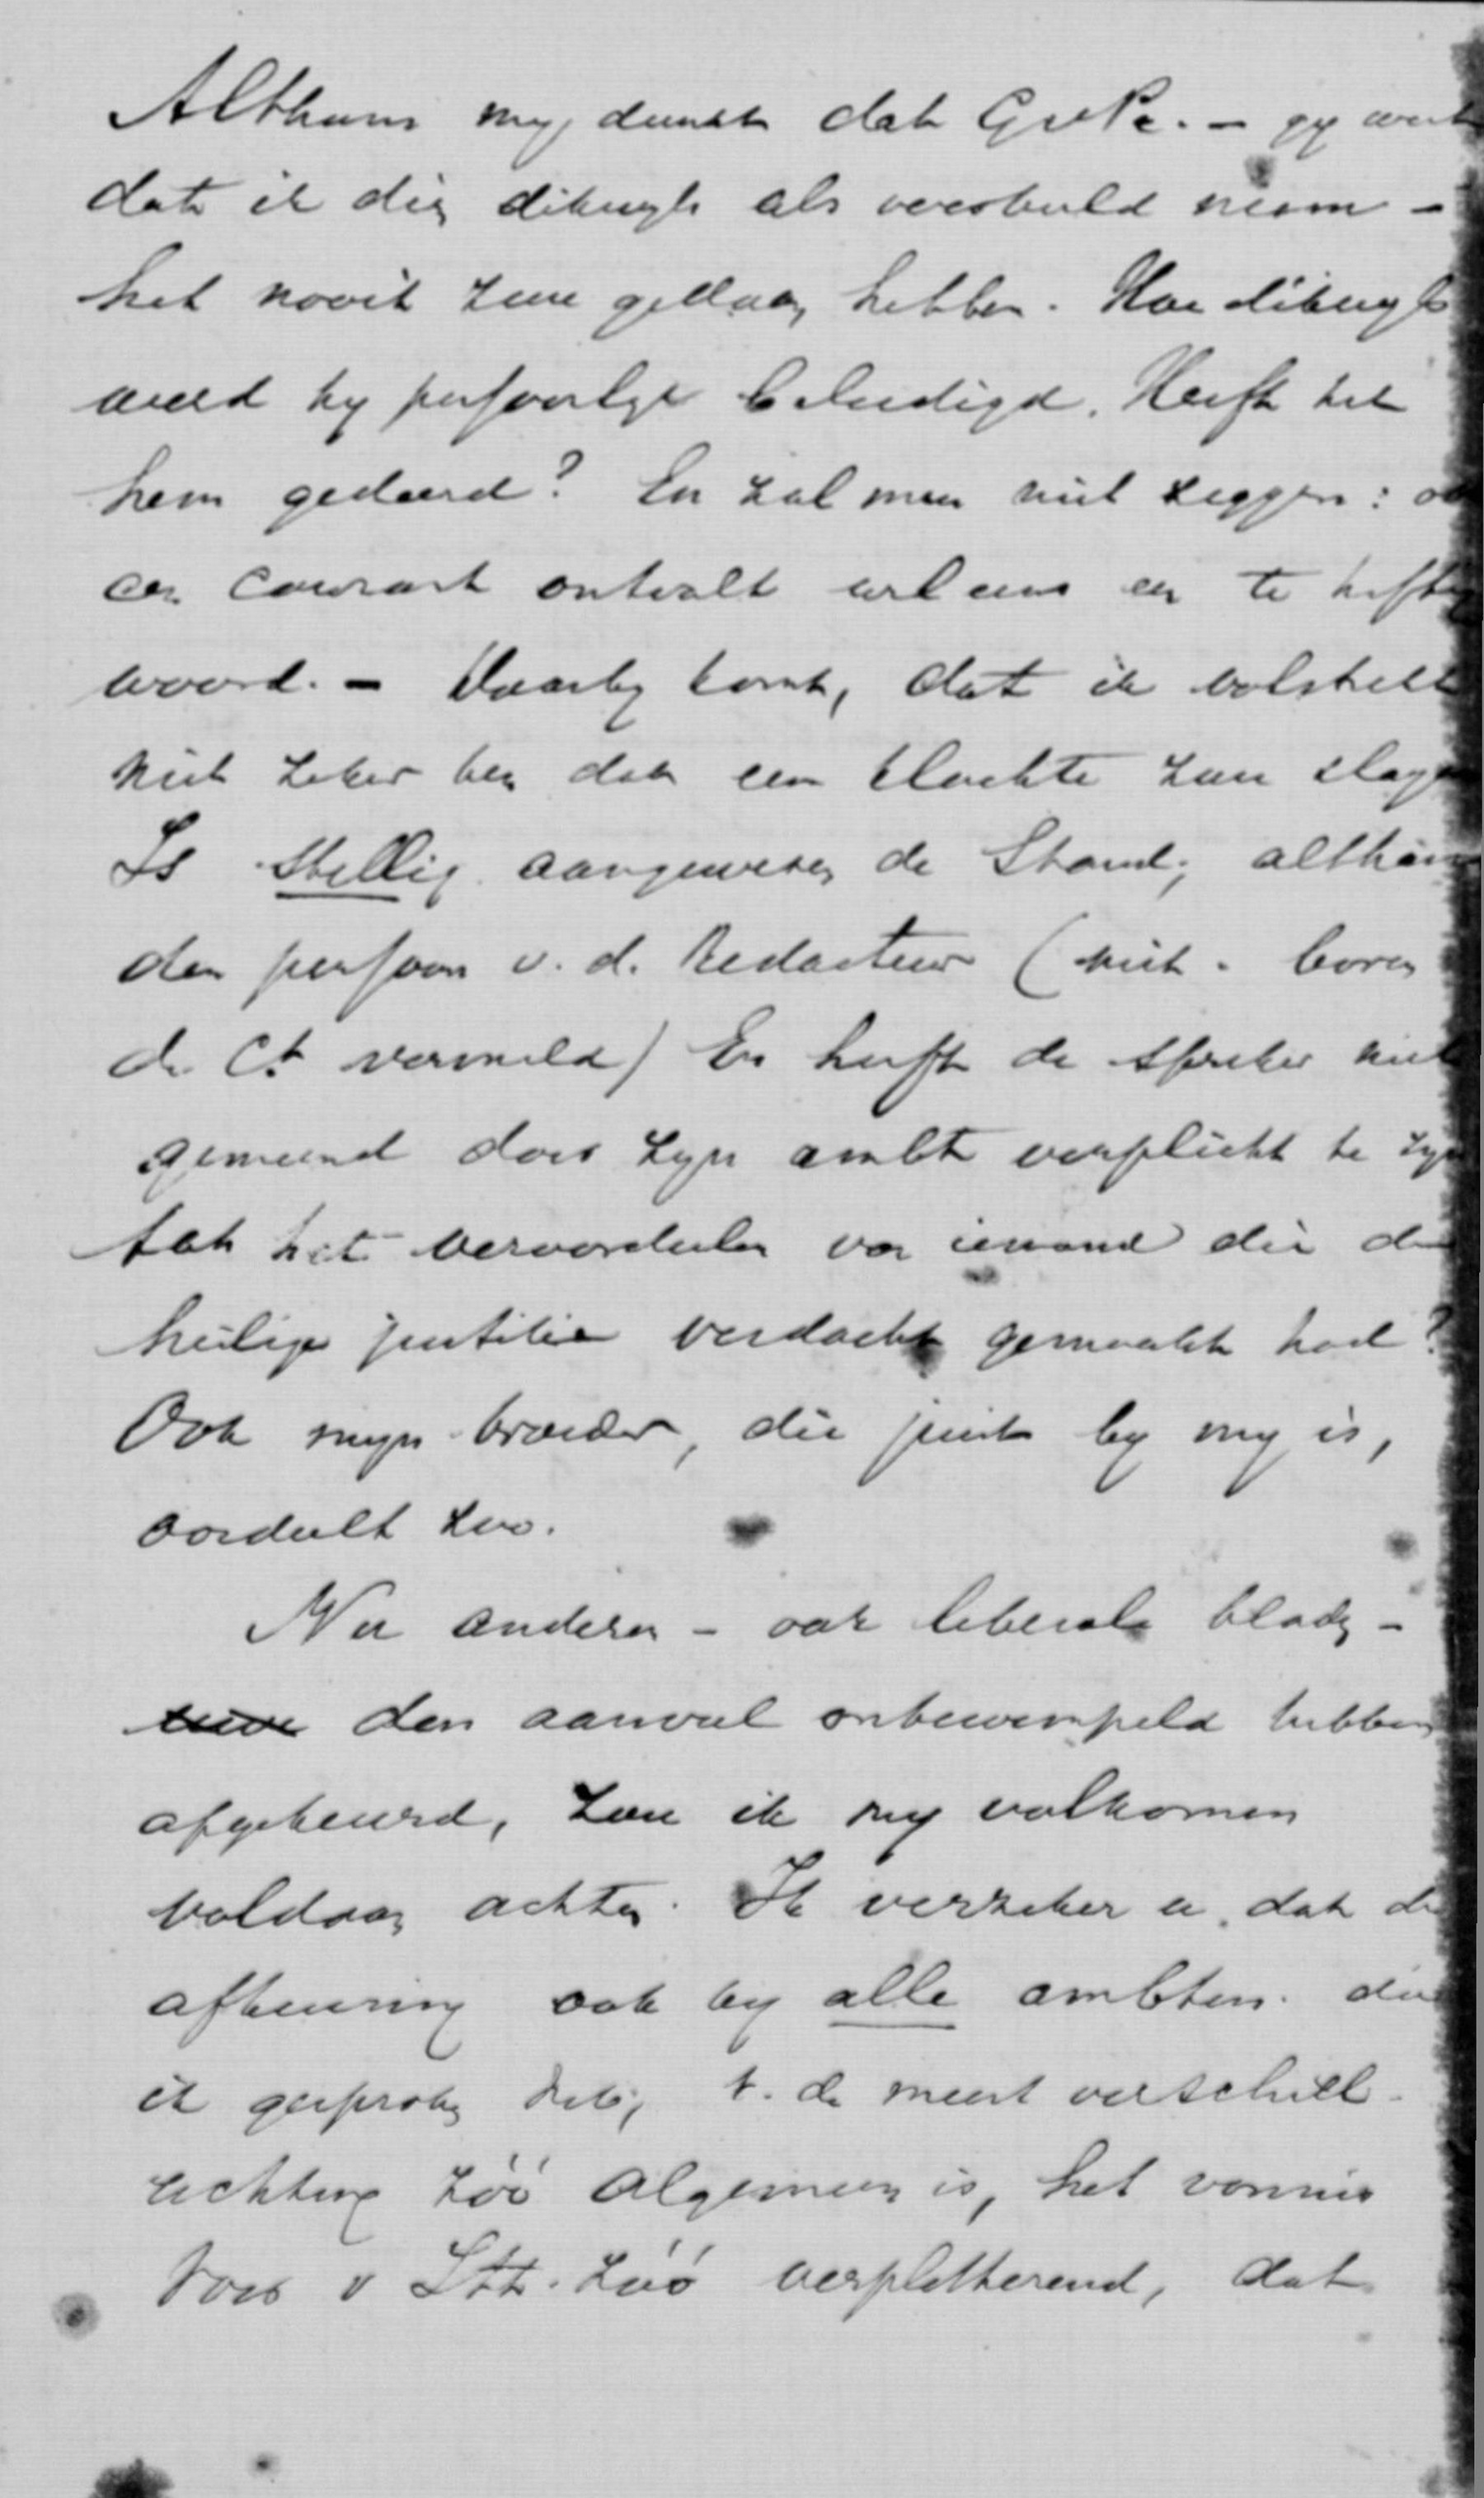 Althans my dunkt dat GvPr. - gy weet
dat ik dien dikwyls als voorbeeld neem -
het nooit zou gedaan hebben. Hoe dikwyls
werd hy persoonlyk beleedigd. Heeft het
hem gedeerd? En zal men niet zeggen: ook
een courant ontvalt wel eens een te heftig
woord. - Daarby komt, dat ik volstrekt
niet zeker ben dat een klachte zou slagen
Is stellig aangewezen de Stand; althans
den persoon v. d. Redacteur (niet boven
de Ct vermeld) En heeft de spreker niet
gemeend door zyn ambt verplicht te zyn
tot het veroordeelen van iemand die de
heilige justitie verdacht gemaakt had?
Ook myn broeder, die juist by my is,
oordeelt zoo.
Nu anderen - ook liberale bladen -
den aanval onbewimpeld hebben
afgekeurd, zou ik my volkomen
voldaan achten. Ik verzeker u, dat de
afkeuring ook by alle ambten. die
ik gesproken heb, v. de meest verschill.
richting zóó algemeen is, het vonnis
voor v Stt. zóó verpletterend, dat